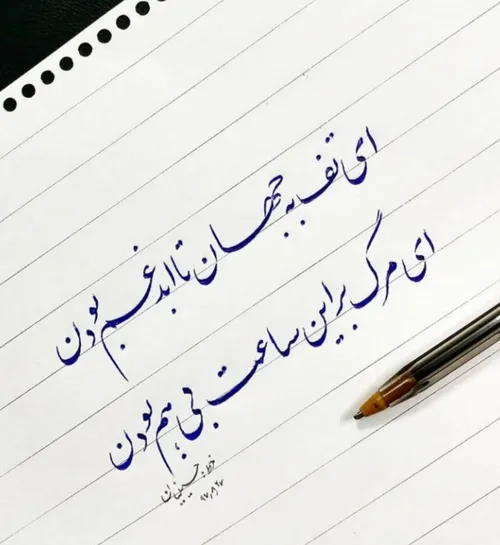 ای تف به جهان تا ابد غم بودن
ای مرگ بر این ساعت بی هم بودن
خط: حسینیان